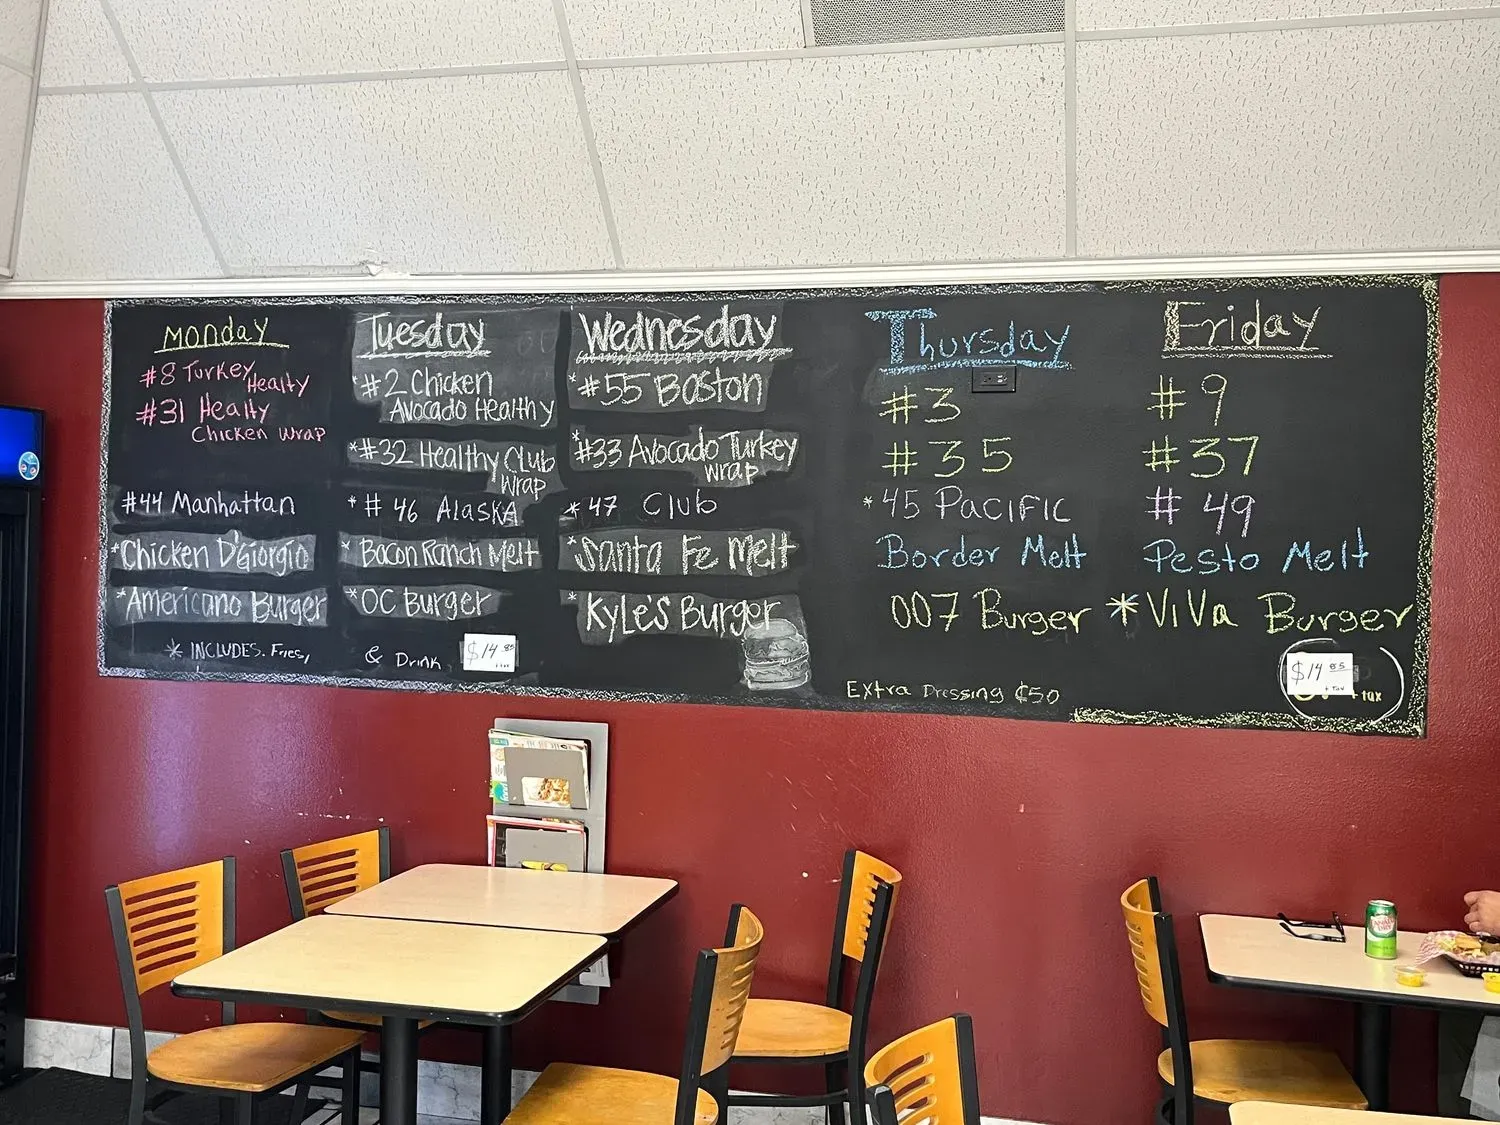 Monday
#8 Turkey Healty
#31 Healty
Chicken Wrap
#44 Manhattan
*Chicken D'Giorgio
*Americano Burger
* INCLUDES. Fries,
Tuesday
*#2 Chicken
Avocado Healthy
*#32 Healthy Club
Wrap
*# 46 Alaska
* Bacon Ranch Melt
*OC Burger
& Drink
$14.85
+ tax
Wednesday
*#55 Boston
*#33 Avocado Turkey
Wrap
*47 Club
*Santa Fe Melt
*Kyle's Burger
Thursday
#3
#35
*45 Pacific
Border Melt
007 Burger
Extra Dressing ¢50
Friday
#9
#37
#49
Pesto Melt
*ViVa Burger
$14 85
+ tax
+ tax